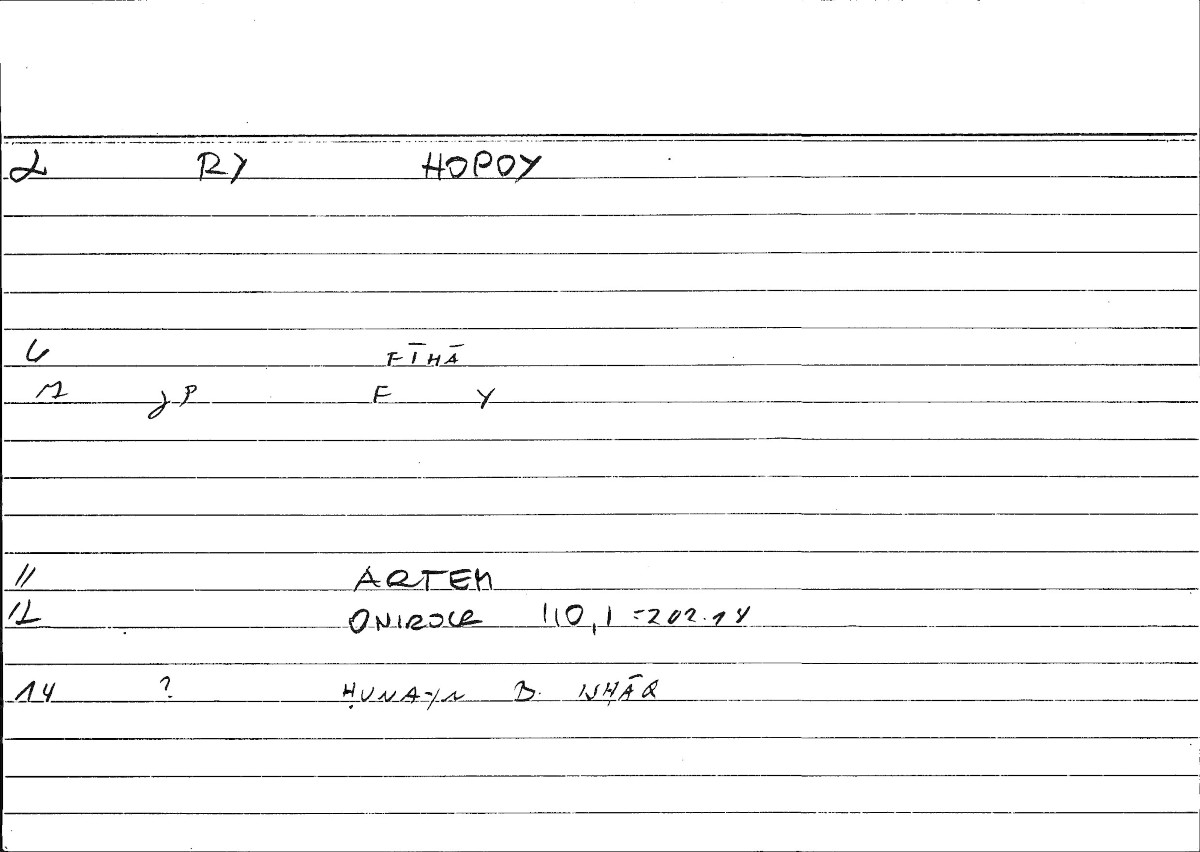 2 RY HOPOY
6 FĪHĀ
F Y
11 ARTEM
12 ONIROCR 110,1 =202.14
14 ? ḤUNAYN B. ISḤĀQ